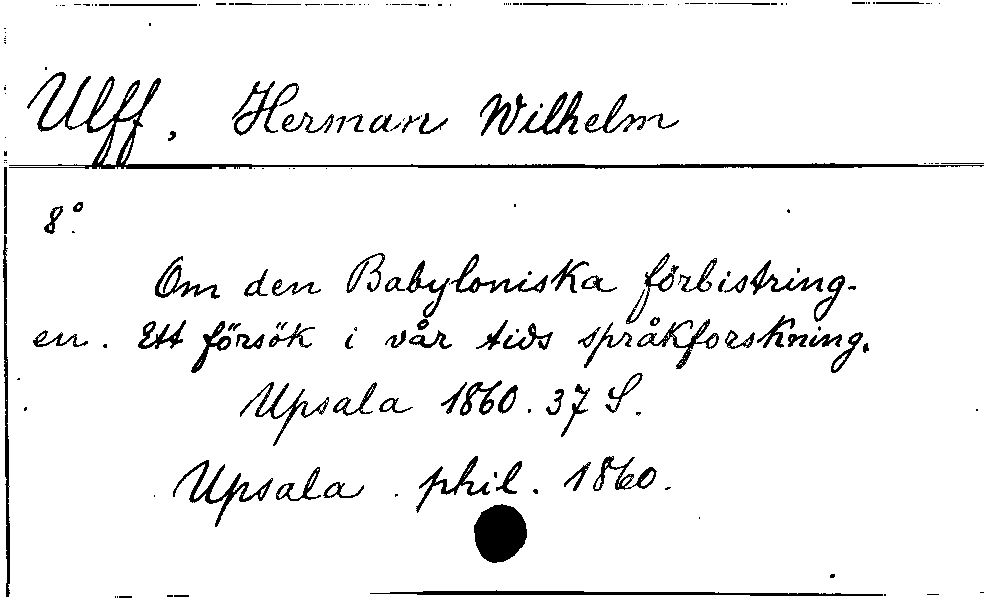 Ulff, Herman Wilhelm
8°.
Om den Babyloniska förbistring-
en. Ett försök i vår tids språkforskning.
Upsala 1860. 37 S.
Upsala. phil. 1860.